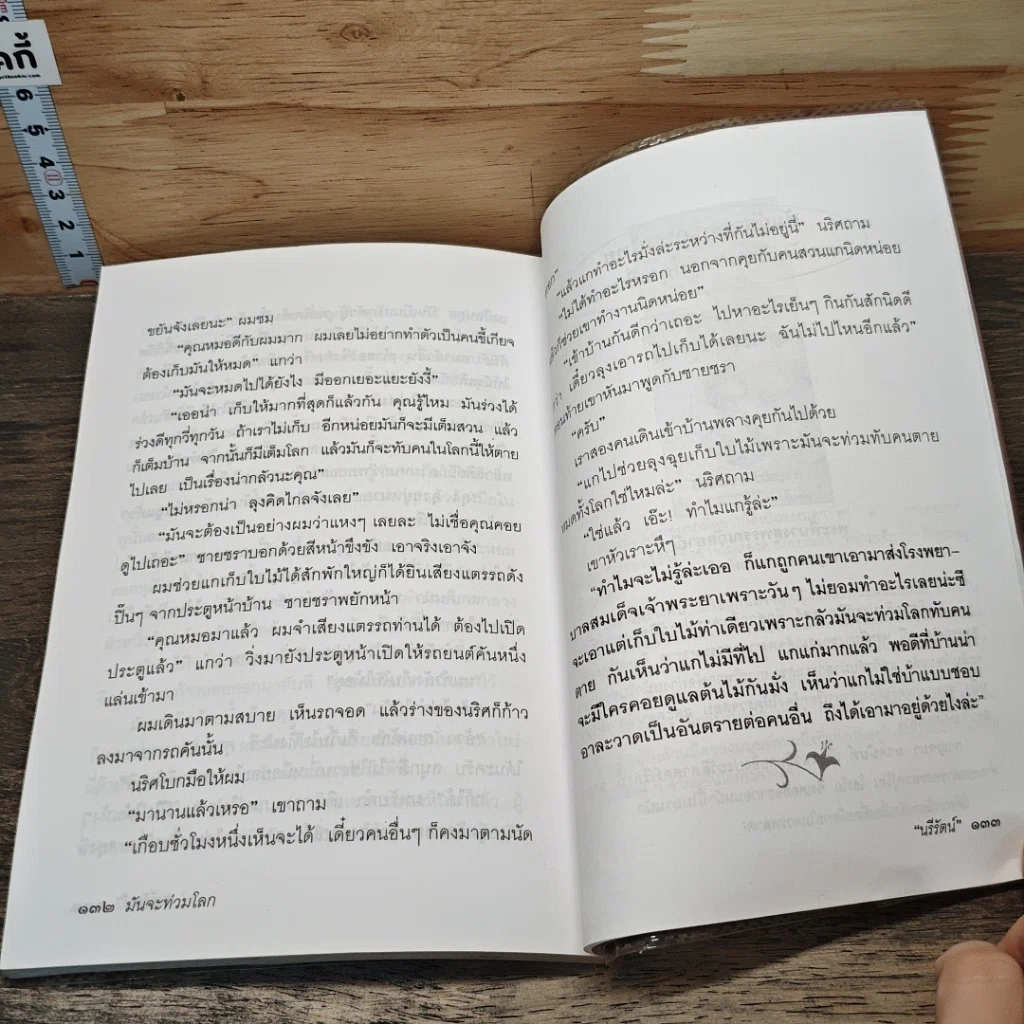 6
5
4
3
2
1
ขยันจังเลยนะ” ผมชม
“คุณหมอดีกับผมมาก ผมเลยไม่อยากทำตัวเป็นคนขี้เกียจ
ต้องเก็บมันให้หมด” แกว่า
“มันจะหมดไปได้ยังไง มีออกเยอะแยะยังงี้”
“เออน่า เก็บให้มากที่สุดก็แล้วกัน คุณรู้ไหม มันร่วงได้
ร่วงดีทุกวี่ทุกวัน ถ้าเราไม่เก็บ อีกหน่อยมันก็จะมีเต็มสวน แล้ว
ก็เต็มบ้าน จากนั้นก็มีเต็มโลก แล้วมันก็จะทับคนในโลกนี้ให้ตาย
ไปเลย เป็นเรื่องน่ากลัวนะคุณ”
“ไม่หรอกน่า ลุงคิดไกลจังเลย”
“มันจะต้องเป็นอย่างผมว่าแหงๆ เลยละ ไม่เชื่อคุณคอย
ดูไปเถอะ” ชายชราบอกด้วยสีหน้าขึงขัง เอาจริงเอาจัง
ผมช่วยแกเก็บใบไม้ได้สักพักใหญ่ก็ได้ยินเสียงแตรรถดัง
ปี๊นๆ จากประตูหน้าบ้าน ชายชราพยักหน้า
“คุณหมอมาแล้ว ผมจำเสียงแตรรถท่านได้ ต้องไปเปิด
ประตูแล้ว” แกว่า วิ่งมายังประตูหน้าเปิดให้รถยนต์คันหนึ่ง
แล่นเข้ามา
ผมเดินมาตามสบาย เห็นรถจอด แล้วร่างของนริศก็ก้าว
ลงมาจากรถคันนั้น
นริศโบกมือให้ผม
“มานานแล้วเหรอ” เขาถาม
“เกือบชั่วโมงหนึ่งเห็นจะได้ เดี๋ยวคนอื่นๆ ก็คงมาตามนัด
๑๓๒ มันจะท่วมโลก
“แล้วแกทำอะไรมั่งล่ะระหว่างที่กันไม่อยู่นี่” นริศถาม
“ไม่ได้ทำอะไรหรอก นอกจากคุยกับคนสวนแกนิดหน่อย
ก็ช่วยเขาทำงานนิดหน่อย”
“เข้าบ้านกันดีกว่าเถอะ ไปหาอะไรเย็นๆ กินกันสักนิดดี
เดี๋ยวลุงเอารถไปเก็บได้เลยนะ ฉันไม่ไปไหนอีกแล้ว”
ท้ายเขาหันมาพูดกับชายชรา
“ครับ”
เราสองคนเดินเข้าบ้านพลางคุยกันไปด้วย
“แกไปช่วยลุงฉุยเก็บใบไม้เพราะมันจะท่วมทับคนตาย
หมดทั้งโลกใช่ไหมล่ะ” นริศถาม
“ใช่แล้ว เอ๊ะ! ทำไมแกรู้ล่ะ”
เขาหัวเราะหึๆ
“ทำไมจะไม่รู้ล่ะเออ ก็แกถูกคนเขาเอามาส่งโรงพยา-
บาลสมเด็จเจ้าพระยาเพราะวันๆ ไม่ยอมทำอะไรเลยน่ะซี
จะเอาแต่เก็บใบไม้ท่าเดียวเพราะกลัวมันจะท่วมโลกทับคน
ตาย กันเห็นว่าแกไม่มีที่ไป แกแก่มากแล้ว พอดีที่บ้านน่า
จะมีใครคอยดูแลต้นไม้กันมั่ง เห็นว่าแกไม่ใช่บ้าแบบชอบ
อาละวาดเป็นอันตรายต่อคนอื่น ถึงได้เอามาอยู่ด้วยไงล่ะ”
“นรีรัตน์” ๑๓๓